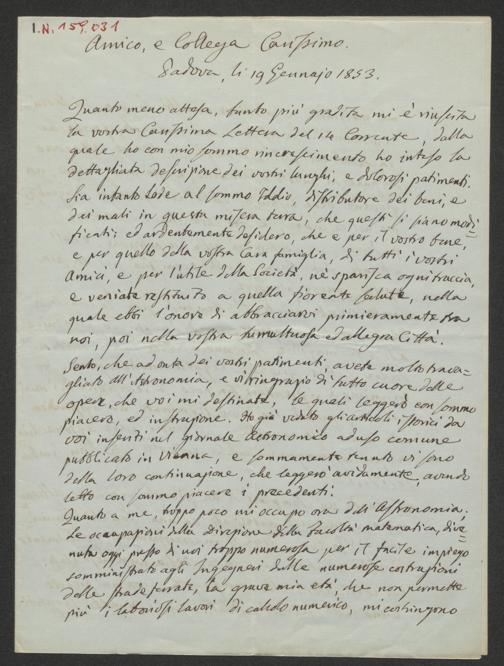 I.N. 159.031
Amico, e Collega Carissimo.
Padova, li 19 Gennajo 1853.
Quanto meno attesa, tanto più gradita mi è riuscita
la vostra Carissima Lettera del 14 Corrente, dalla
quale ho con mio sommo rincrescimento ho inteso la
dettagliata descrizione dei vostri lunghi, e dolorosi patimenti.
Sia intanto Lode al sommo Iddio, distributore dei beni, e
dei mali in questa misera terra, che questi si siano modi=
ficati; ed ardentemente desidero, che e per il vostro bene,
e per quello della vostra Cara famiglia, di tutti i vostri
Amici, e per l'utile della Società, ne sparisca ogni traccia,
e veniate restituito a quella fiorente salute, nella
quale ebbi l'onore di abbracciarvi primieramente tra
noi, poi nella vostra tumultuosa ed allegra Città.
Sento, che ad onta dei vostri patimenti, avete molto trava=
gliato all'Astronomia, e vi ringrazio di tutto cuore delle
opere, che voi mi destinate, le quali leggerò con sommo
piacere, ed instruzione. Ho già veduto gli articoli istorici da
voi inseriti nel giornale Astronomico ad uso comune
pubblicato in Vienna, e sommamente tenuto vi sono
della loro continuazione, che leggerò avidamente, avendo
letto con sommo piacere i precedenti.
Quanto a me, troppo poco mi occupo ora dell'Astronomia.
Le occupazioni della Direzione della Facoltà matematica, dive=
nuta oggi presso di noi troppo numerosa per il facile impiego
somministrato agli Ingegneri dalle numerose costruzioni
dalle strade ferrate, la grave mia età, che non permette
più i laboriosi lavori di calcolo numerico, mi costringono